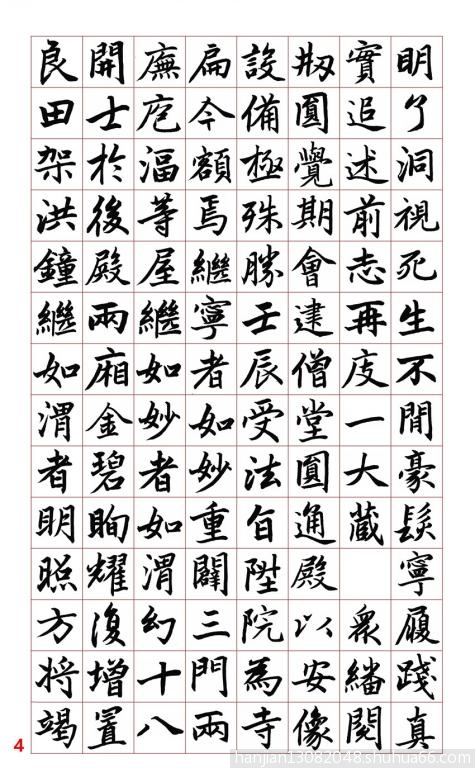 明了洞視死生不閒豪髮寧履踐真
實追述前志再度一大藏 衆繙閱
刱圓覺期會建僧堂圓通殿以安像
設備極殊勝壬辰受法旨陞院為寺
扁今額焉繼寧者如妙重闢三門兩
廡庖湢等屋繼如妙者如渭幻十八
開士於後殿兩廂金碧眴耀復增置
良田架洪鐘繼如渭者明照方將竭
4
hanjian13082048.shuhua66.com